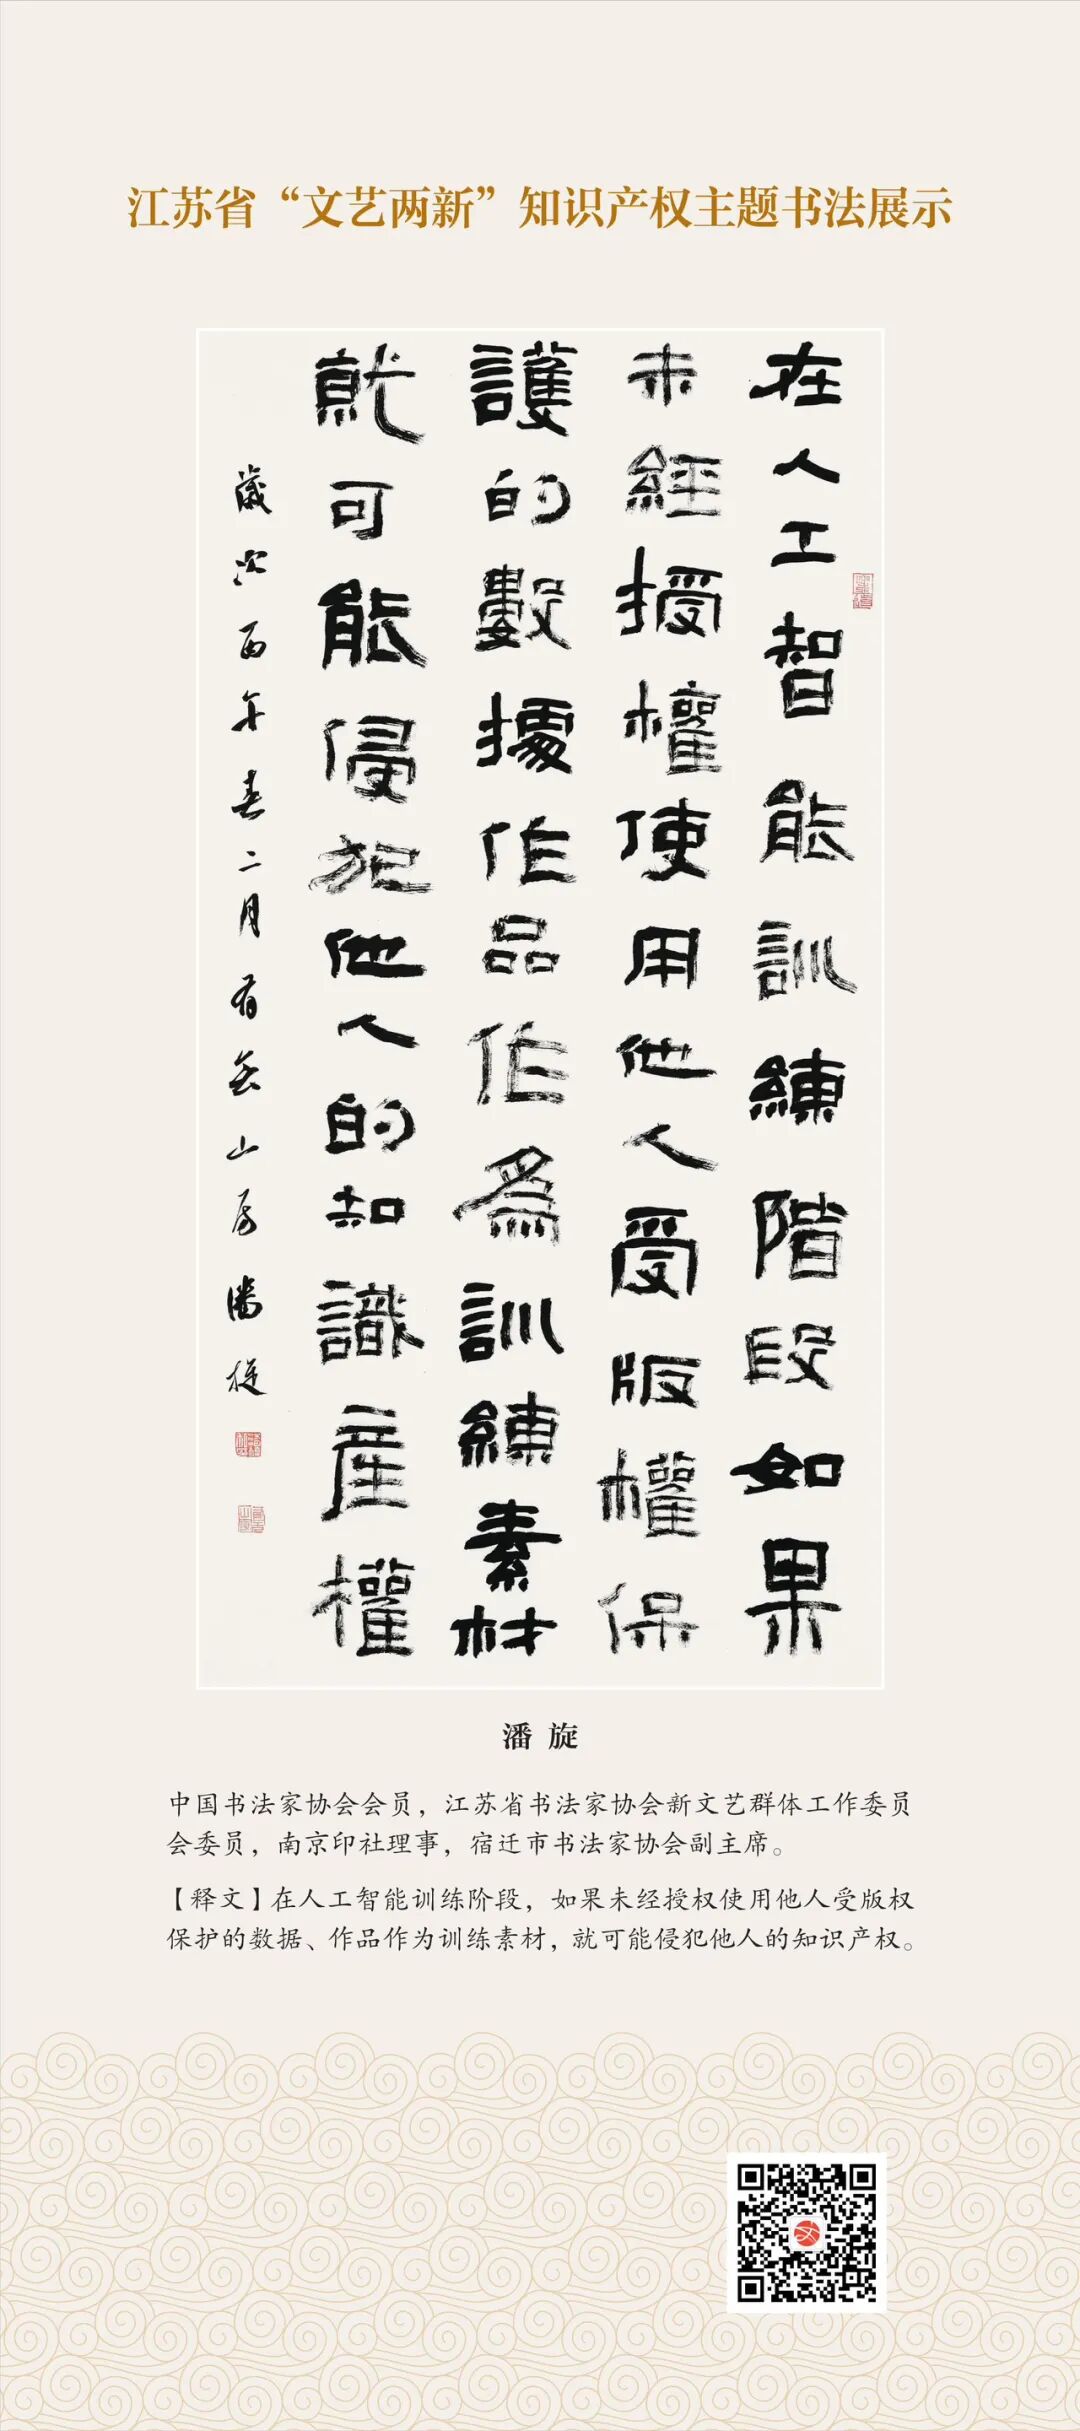 江苏省“文艺两新”知识产权主题书法展示
在人工智能訓練階段如果
未經授權使用他人受版權保
護的數據作品作為訓練素材
就可能侵犯他人的知識產權
歲次丙午春二月有 山房潘旋
潘 旋
中国书法家协会会员，江苏省书法家协会新文艺群体工作委员
会委员，南京印社理事，宿迁市书法家协会副主席。
【释文】在人工智能训练阶段，如果未经授权使用他人受版权
保护的数据、作品作为训练素材，就可能侵犯他人的知识产权。